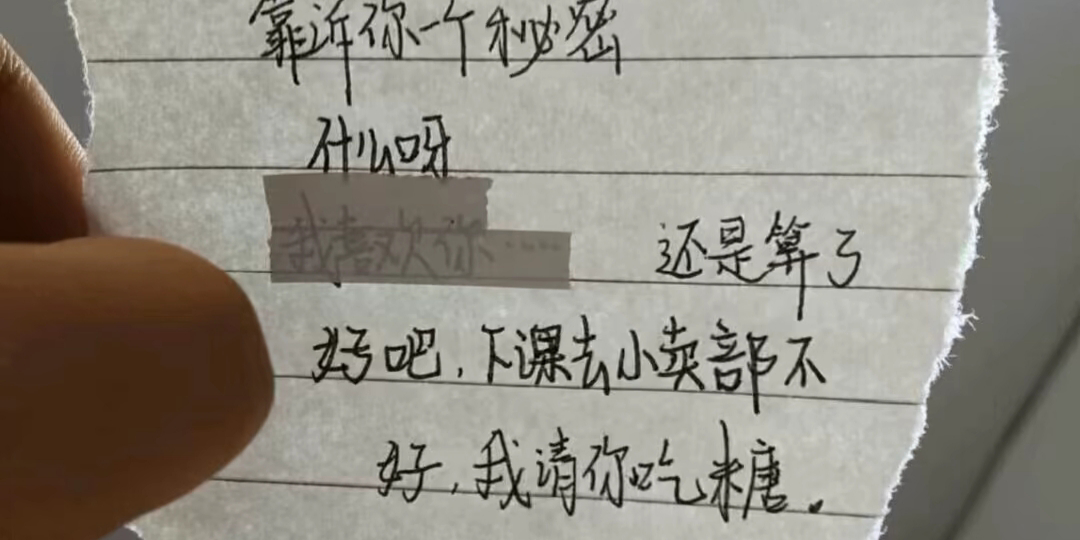 靠诉你一个秘密
什么呀
我喜欢你…… 还是算了
好吧，下课去小卖部不
好，我请你吃糖.